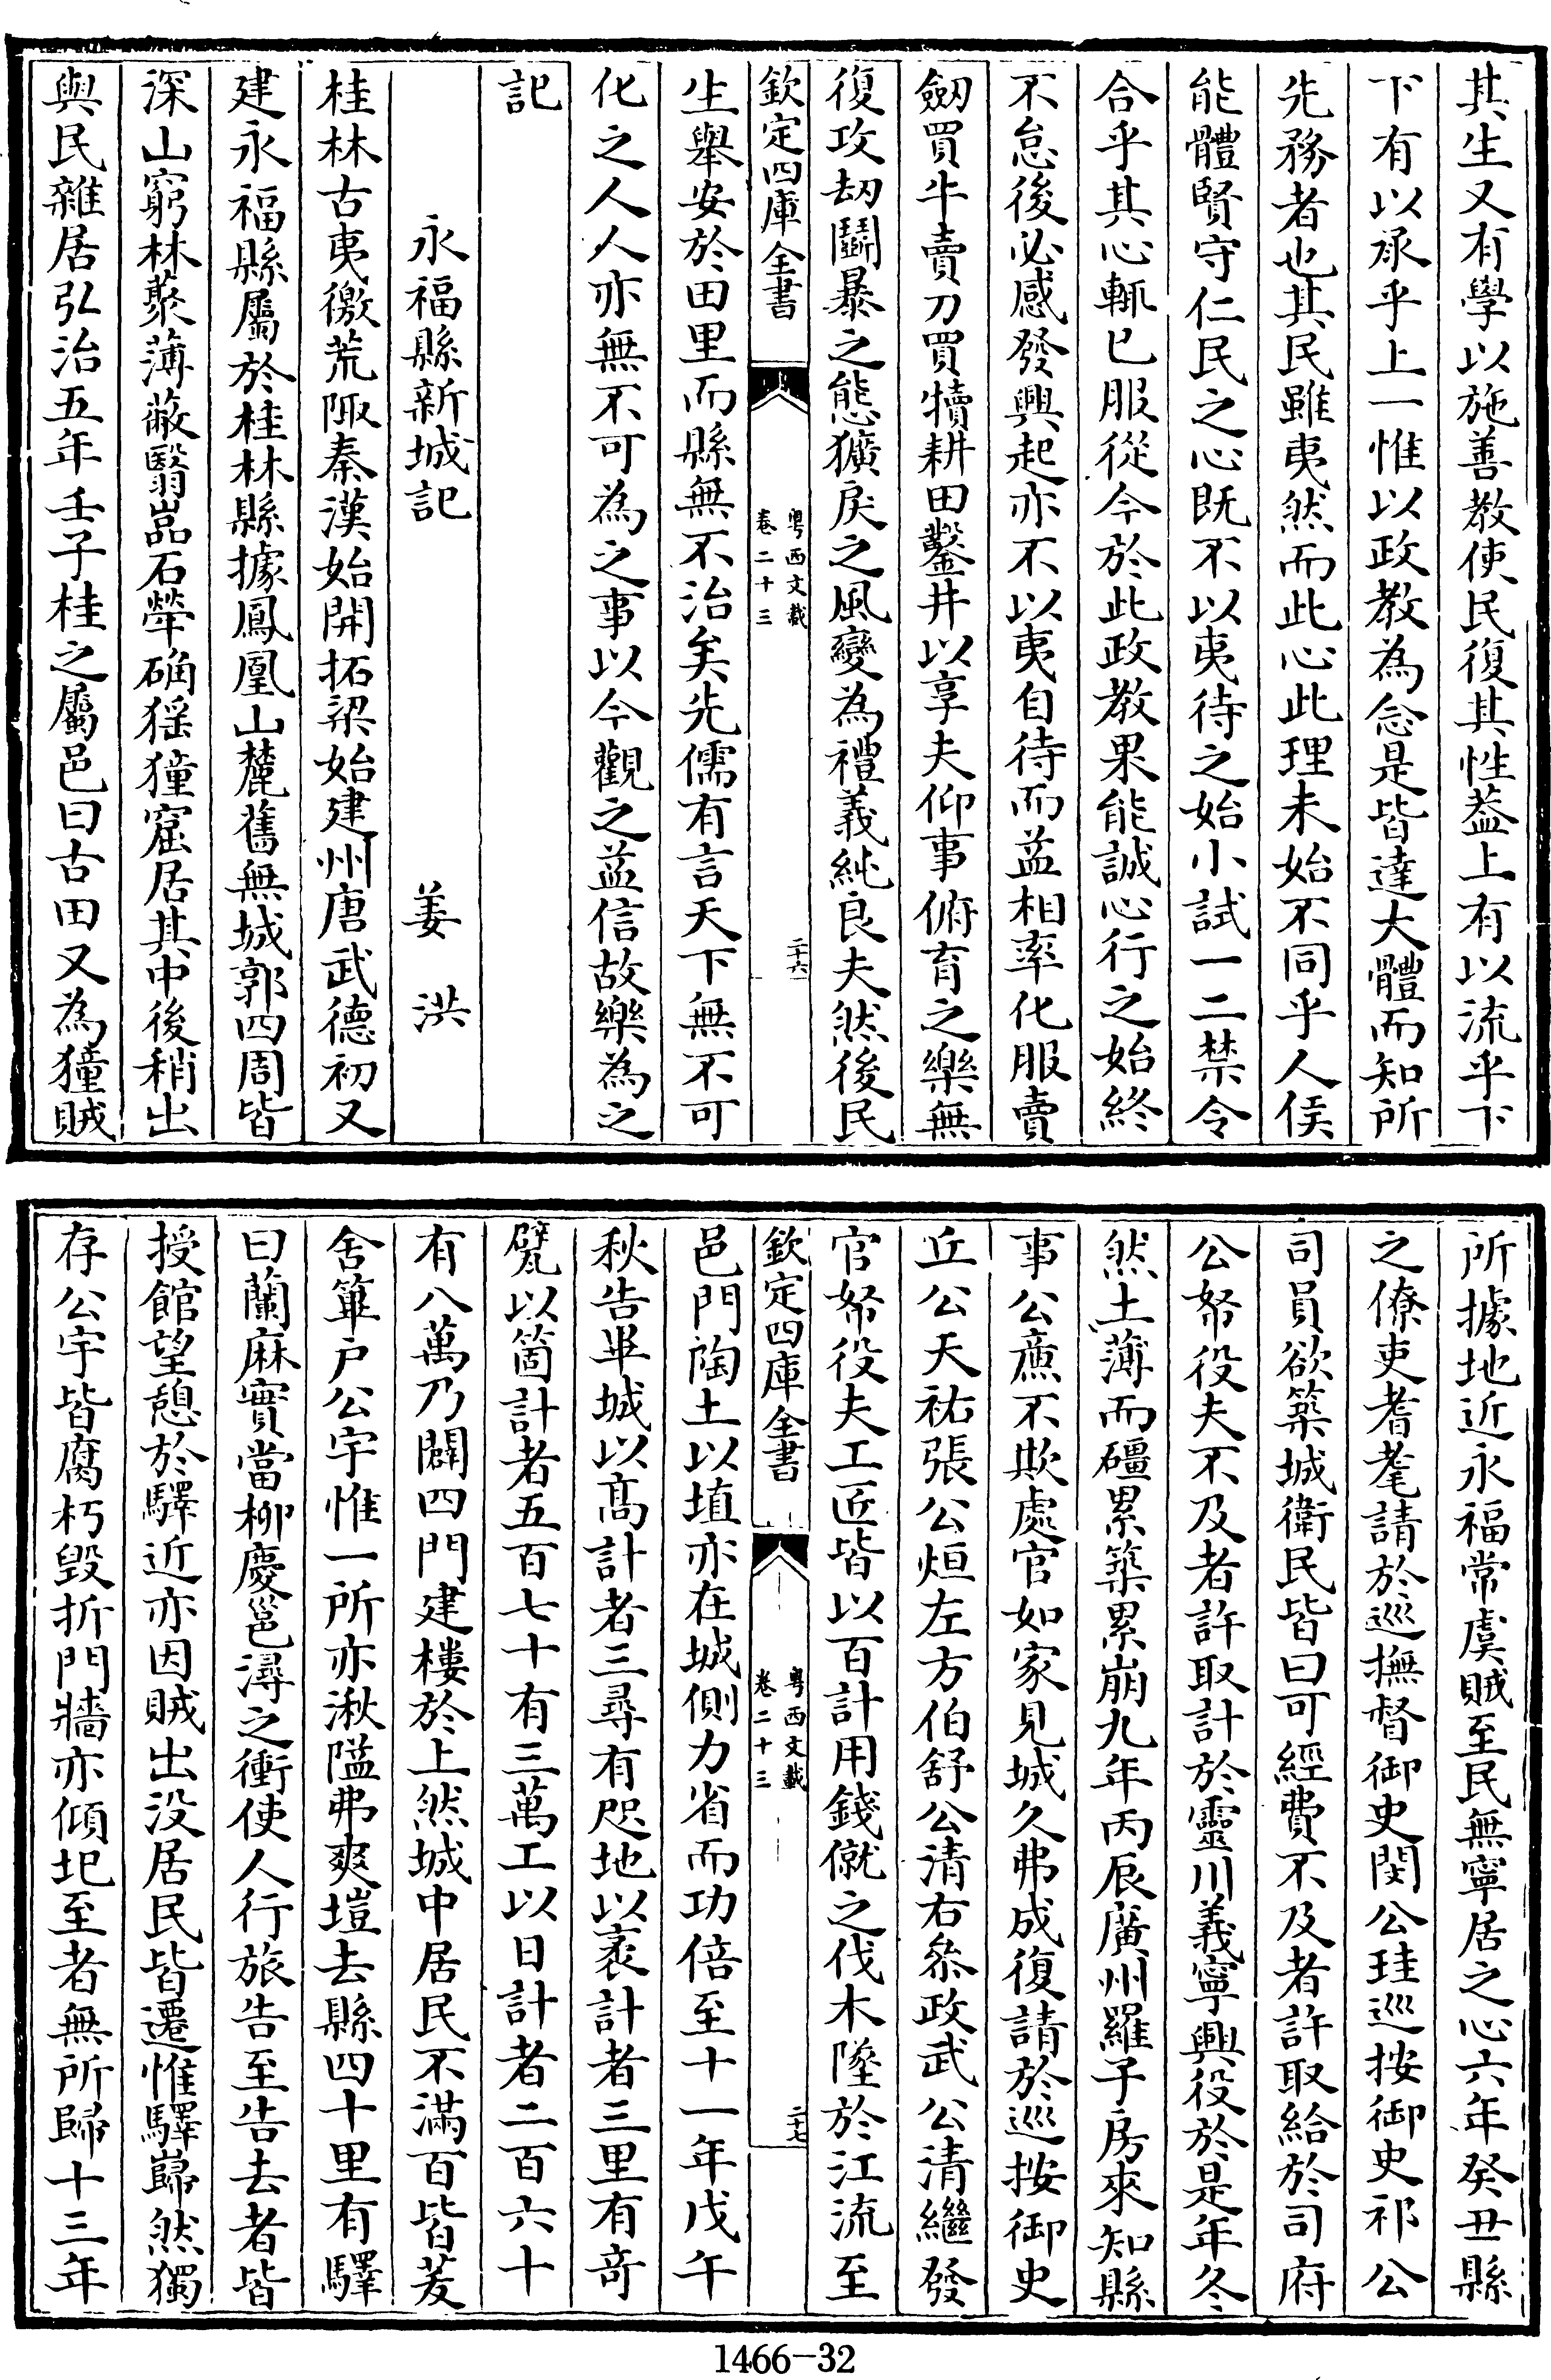 其生又有學以施善教使民復其性葢上有以流乎下
下有以承乎上一惟以政教為念是皆達大體而知所
先務者也其民雖夷然而此心此理未始不同乎人侯
能體賢守仁民之心既不以夷待之始小試一二禁令
合乎其心輒已服從今於此政教果能誠心行之始終
不怠後必感發興起亦不以夷自待而益相率化服賣
劒買牛賣刀買犢耕田鑿井以享夫仰事俯育之樂無
復攻刼鬪暴之態獷戾之風變為禮義純良夫然後民
欽定四庫全書
粤西文載
卷二十三
二十六
生舉安於田里而縣無不治矣先儒有言天下無不可
化之人人亦無不可為之事以今觀之益信故樂為之
記
永福縣新城記
姜洪
桂林古夷徼荒陬秦漢始開拓梁始建州唐武德初又
建永福縣屬於桂林縣據鳳凰山麓舊無城郭四周皆
深山窮林藂薄蔽翳嵓石犖确猺獞窟居其中後稍出
與民雜居弘治五年壬子桂之屬邑曰古田又為獞賊
所據地近永福常虞賊至民無寧居之心六年癸丑縣
之僚吏耆耄請於巡撫督御史閔公珪巡按御史祁公
司員欲築城衛民皆曰可經費不及者許取給於司府
公帑役夫不及者許取計於靈川義寧興役於是年冬
然土薄而礓累築累崩九年丙辰廣州羅子房來知縣
事公亷不欺處官如家見城久弗成復請於巡按御史
丘公天祐張公烜左方伯舒公清右叅政武公清繼發
官帑役夫工匠皆以百計用錢僦之伐木墜於江流至
欽定四庫全書
粤西文載
卷二十三
二十七
邑門陶土以埴亦在城側力省而功倍至十一年戊午
秋告畢城以高計者三尋有咫地以袤計者三里有奇
甓以箇計者五百七十有三萬工以日計者二百六十
有八萬乃闢四門建樓於上然城中居民不滿百皆茇
舍篳户公宇惟一所亦湫隘弗爽塏去縣四十里有驛
曰蘭麻實當柳慶邕潯之衝使人行旅告至告去者皆
授館望憩於驛近亦因賊出没居民皆遷惟驛巋然獨
存公宇皆腐朽毀折門牆亦傾圯至者無所歸十三年
1466-32